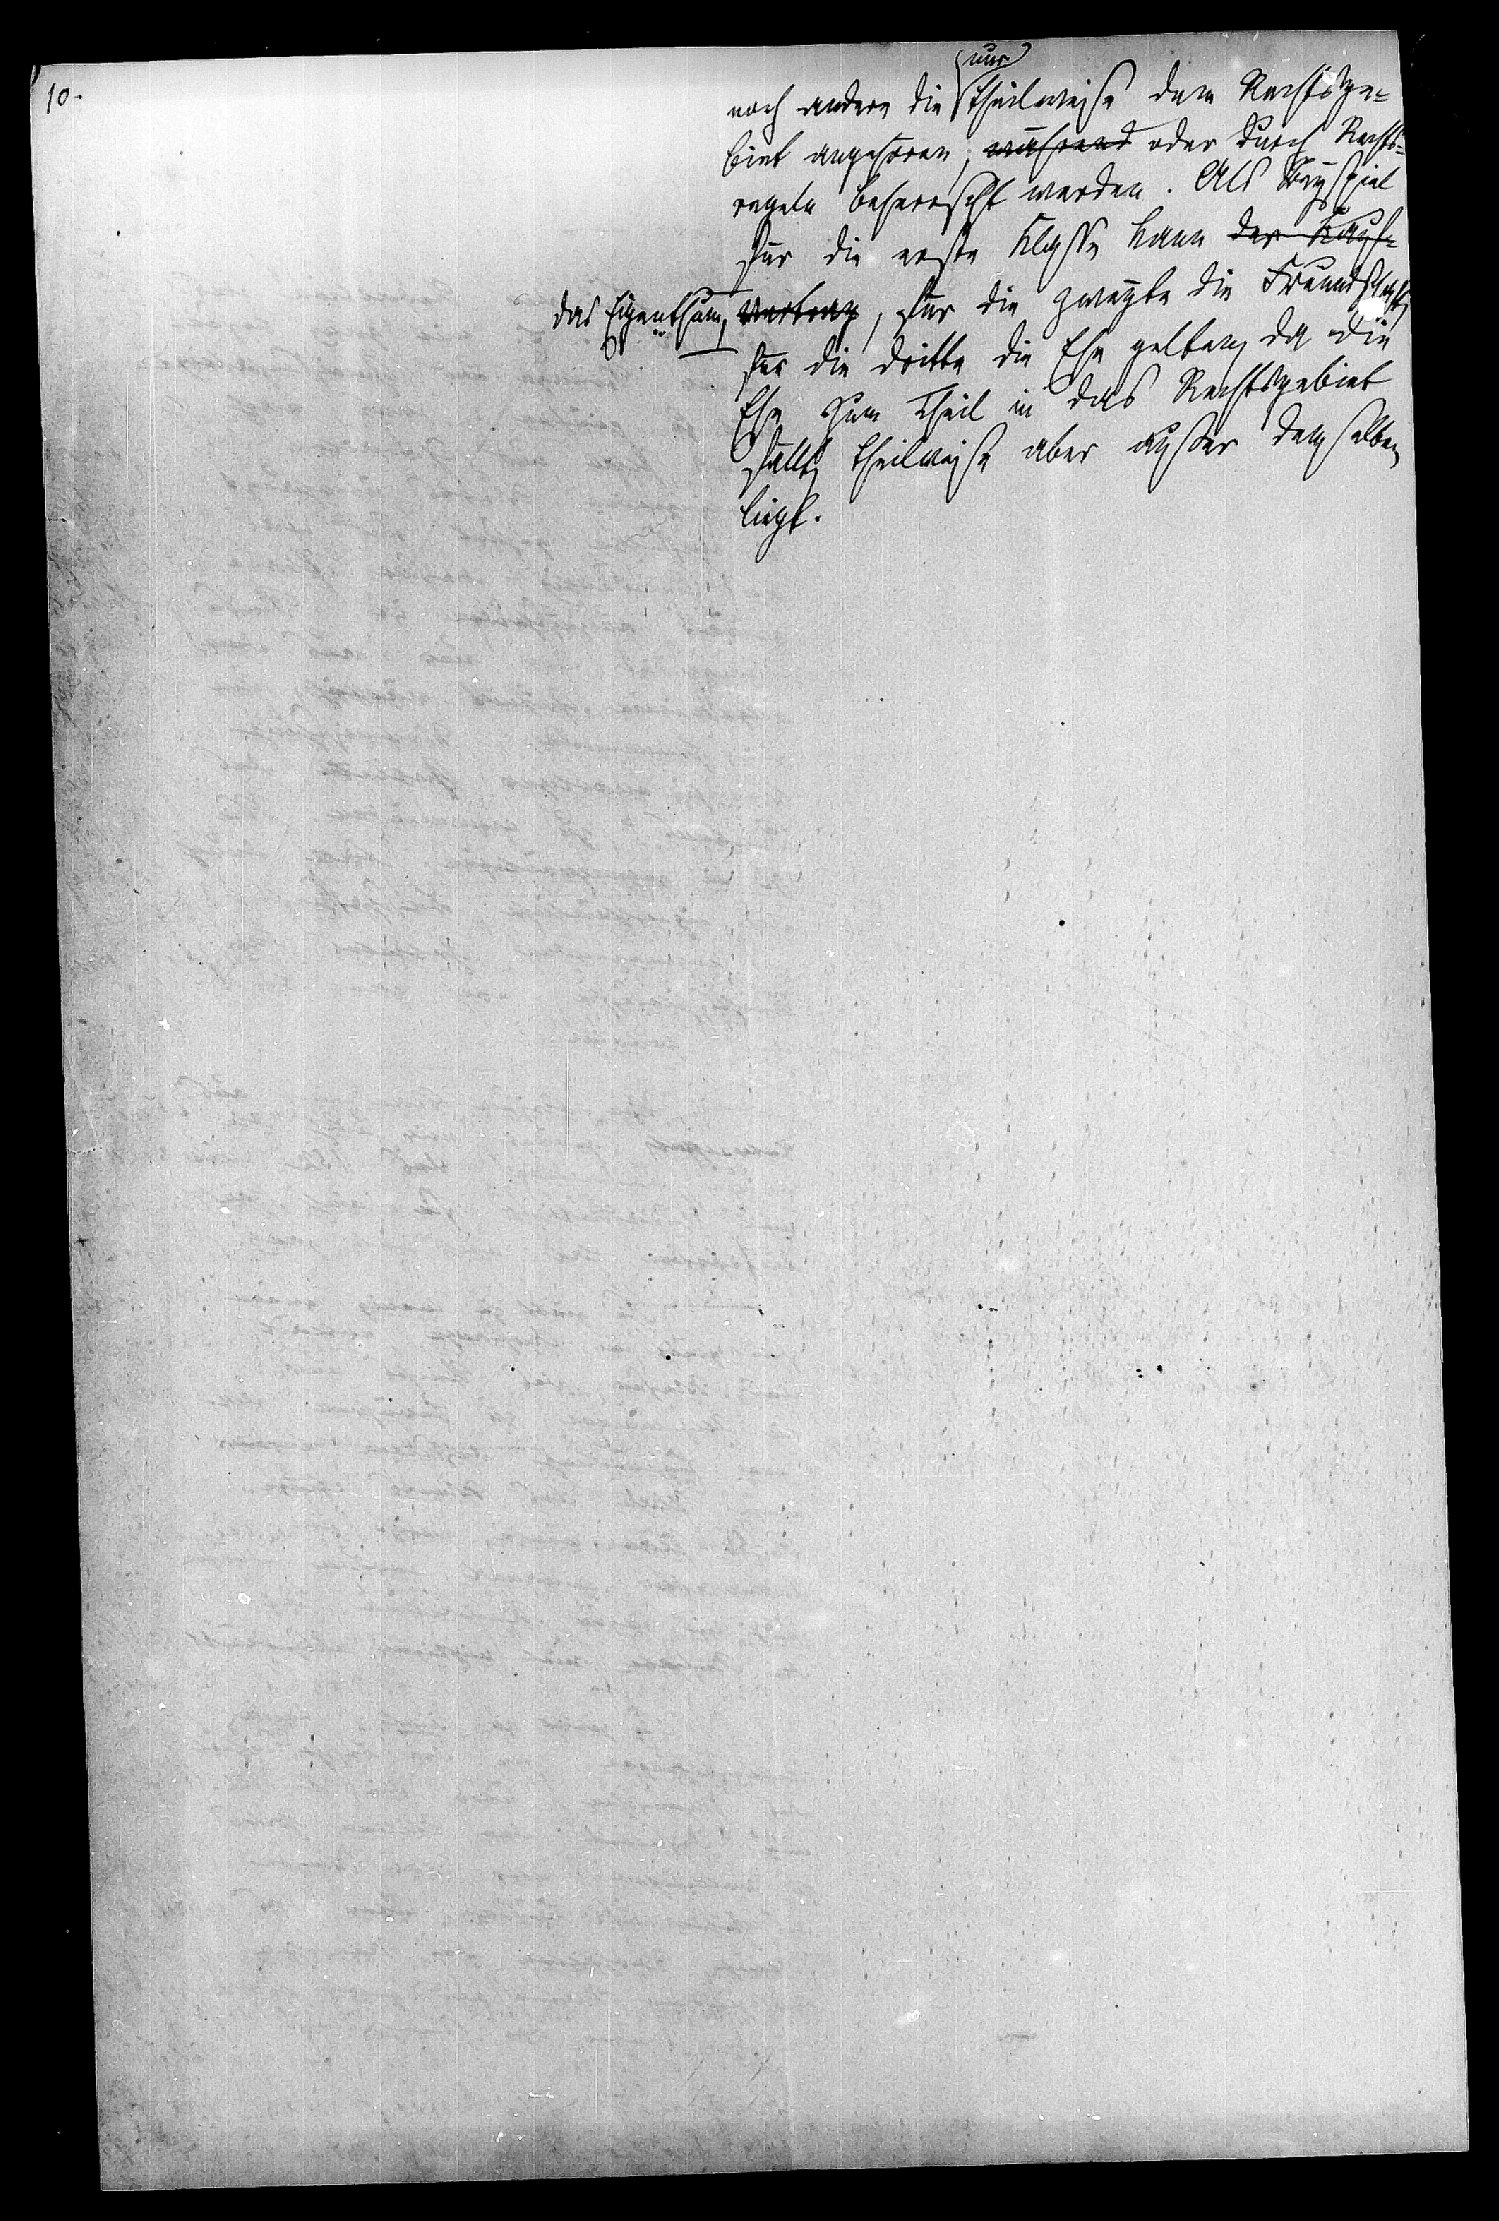 10.
nur
noch andere die theilweise dem Rechtsge=
biet angehören, während oder durch Rechts=
regeln beherrscht werden. Als Beyspiel
für die erste Klasse kann der Kauf=
das Eigenthum, vertrag, für die zweyte die Freundschaft,
für die dritte die Ehe gelten, da die
Ehe zum Theil in das Rechtsgebiet
fällt, theilweise aber außer demselben
liegt.